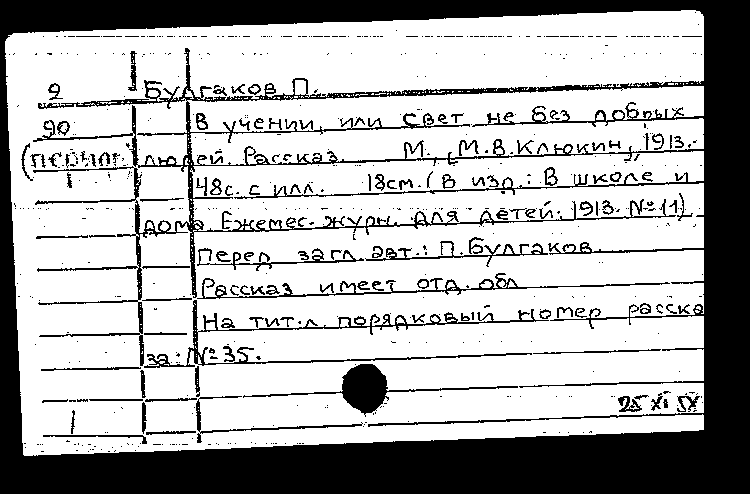 9 Булгаков, П.
90 В учении, или свет не без добрых
(период.) людей. Рассказ. М., [М.В. Клюкин], 1913.-
1 48с. с илл. 18см. (В изд.: В школе и
дома. Ежемес. журн. для детей. 1913. №11)
Перед загл. авт.: П. Булгаков.
Рассказ имеет отд. обл
На тит. л. порядковый номер расска
за: №35.
25 XI
1